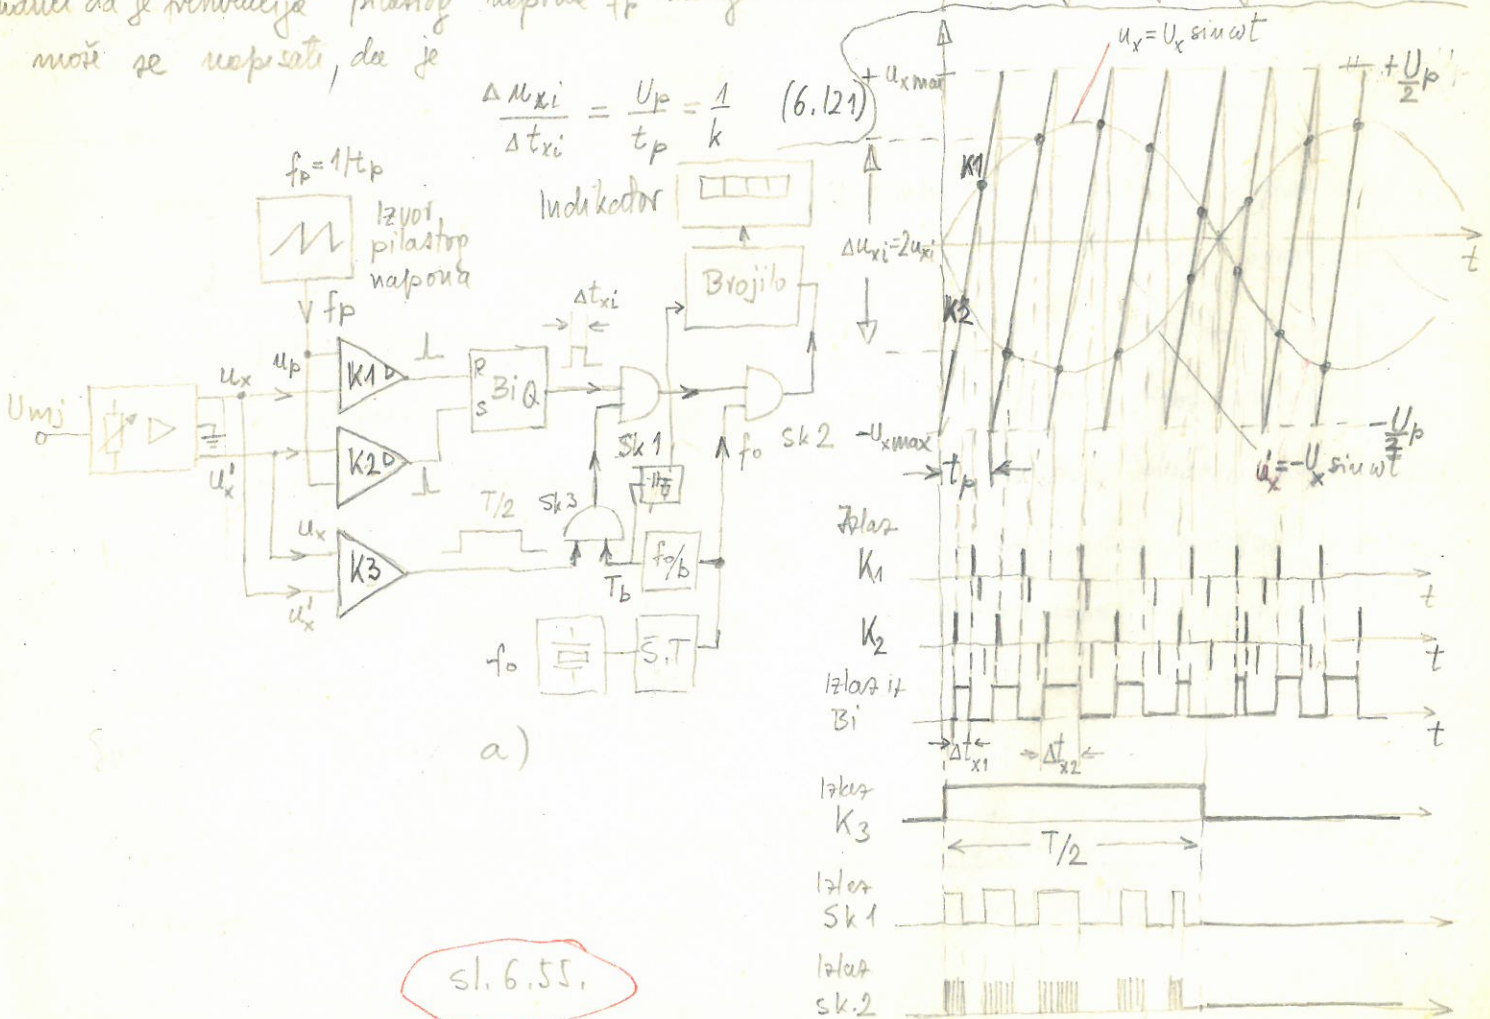 da je frekvencija pilastog napona fp
može se napisati, da je
Δuxi/Δtxi = Up/tp = 1/k (6.121)
fp=1/tp
Izvor
pilastog
napona
fp
Indikator
Brojilo
Δtxi
Umj
ux
up
u'x
K1
K2
K3
R
S
Bi Q
Sk1
Sk2
Sk3
T/2
ux
u'x
Tb
fo/b
fo
fo
S.T
a)
sl. 6.55.
ux=Ux sinωt
+uxmax
+Up/2
K1
Δuxi=2uxi
K2
t
-uxmax
-Up/2
tp
u'x=-Ux sinωt
Izlaz
K1
t
K2
t
Izlaz iz
Bi
t
Δtx1
Δtx2
Izlaz
K3
T/2
Izlaz
Sk1
Izlaz
sk.2